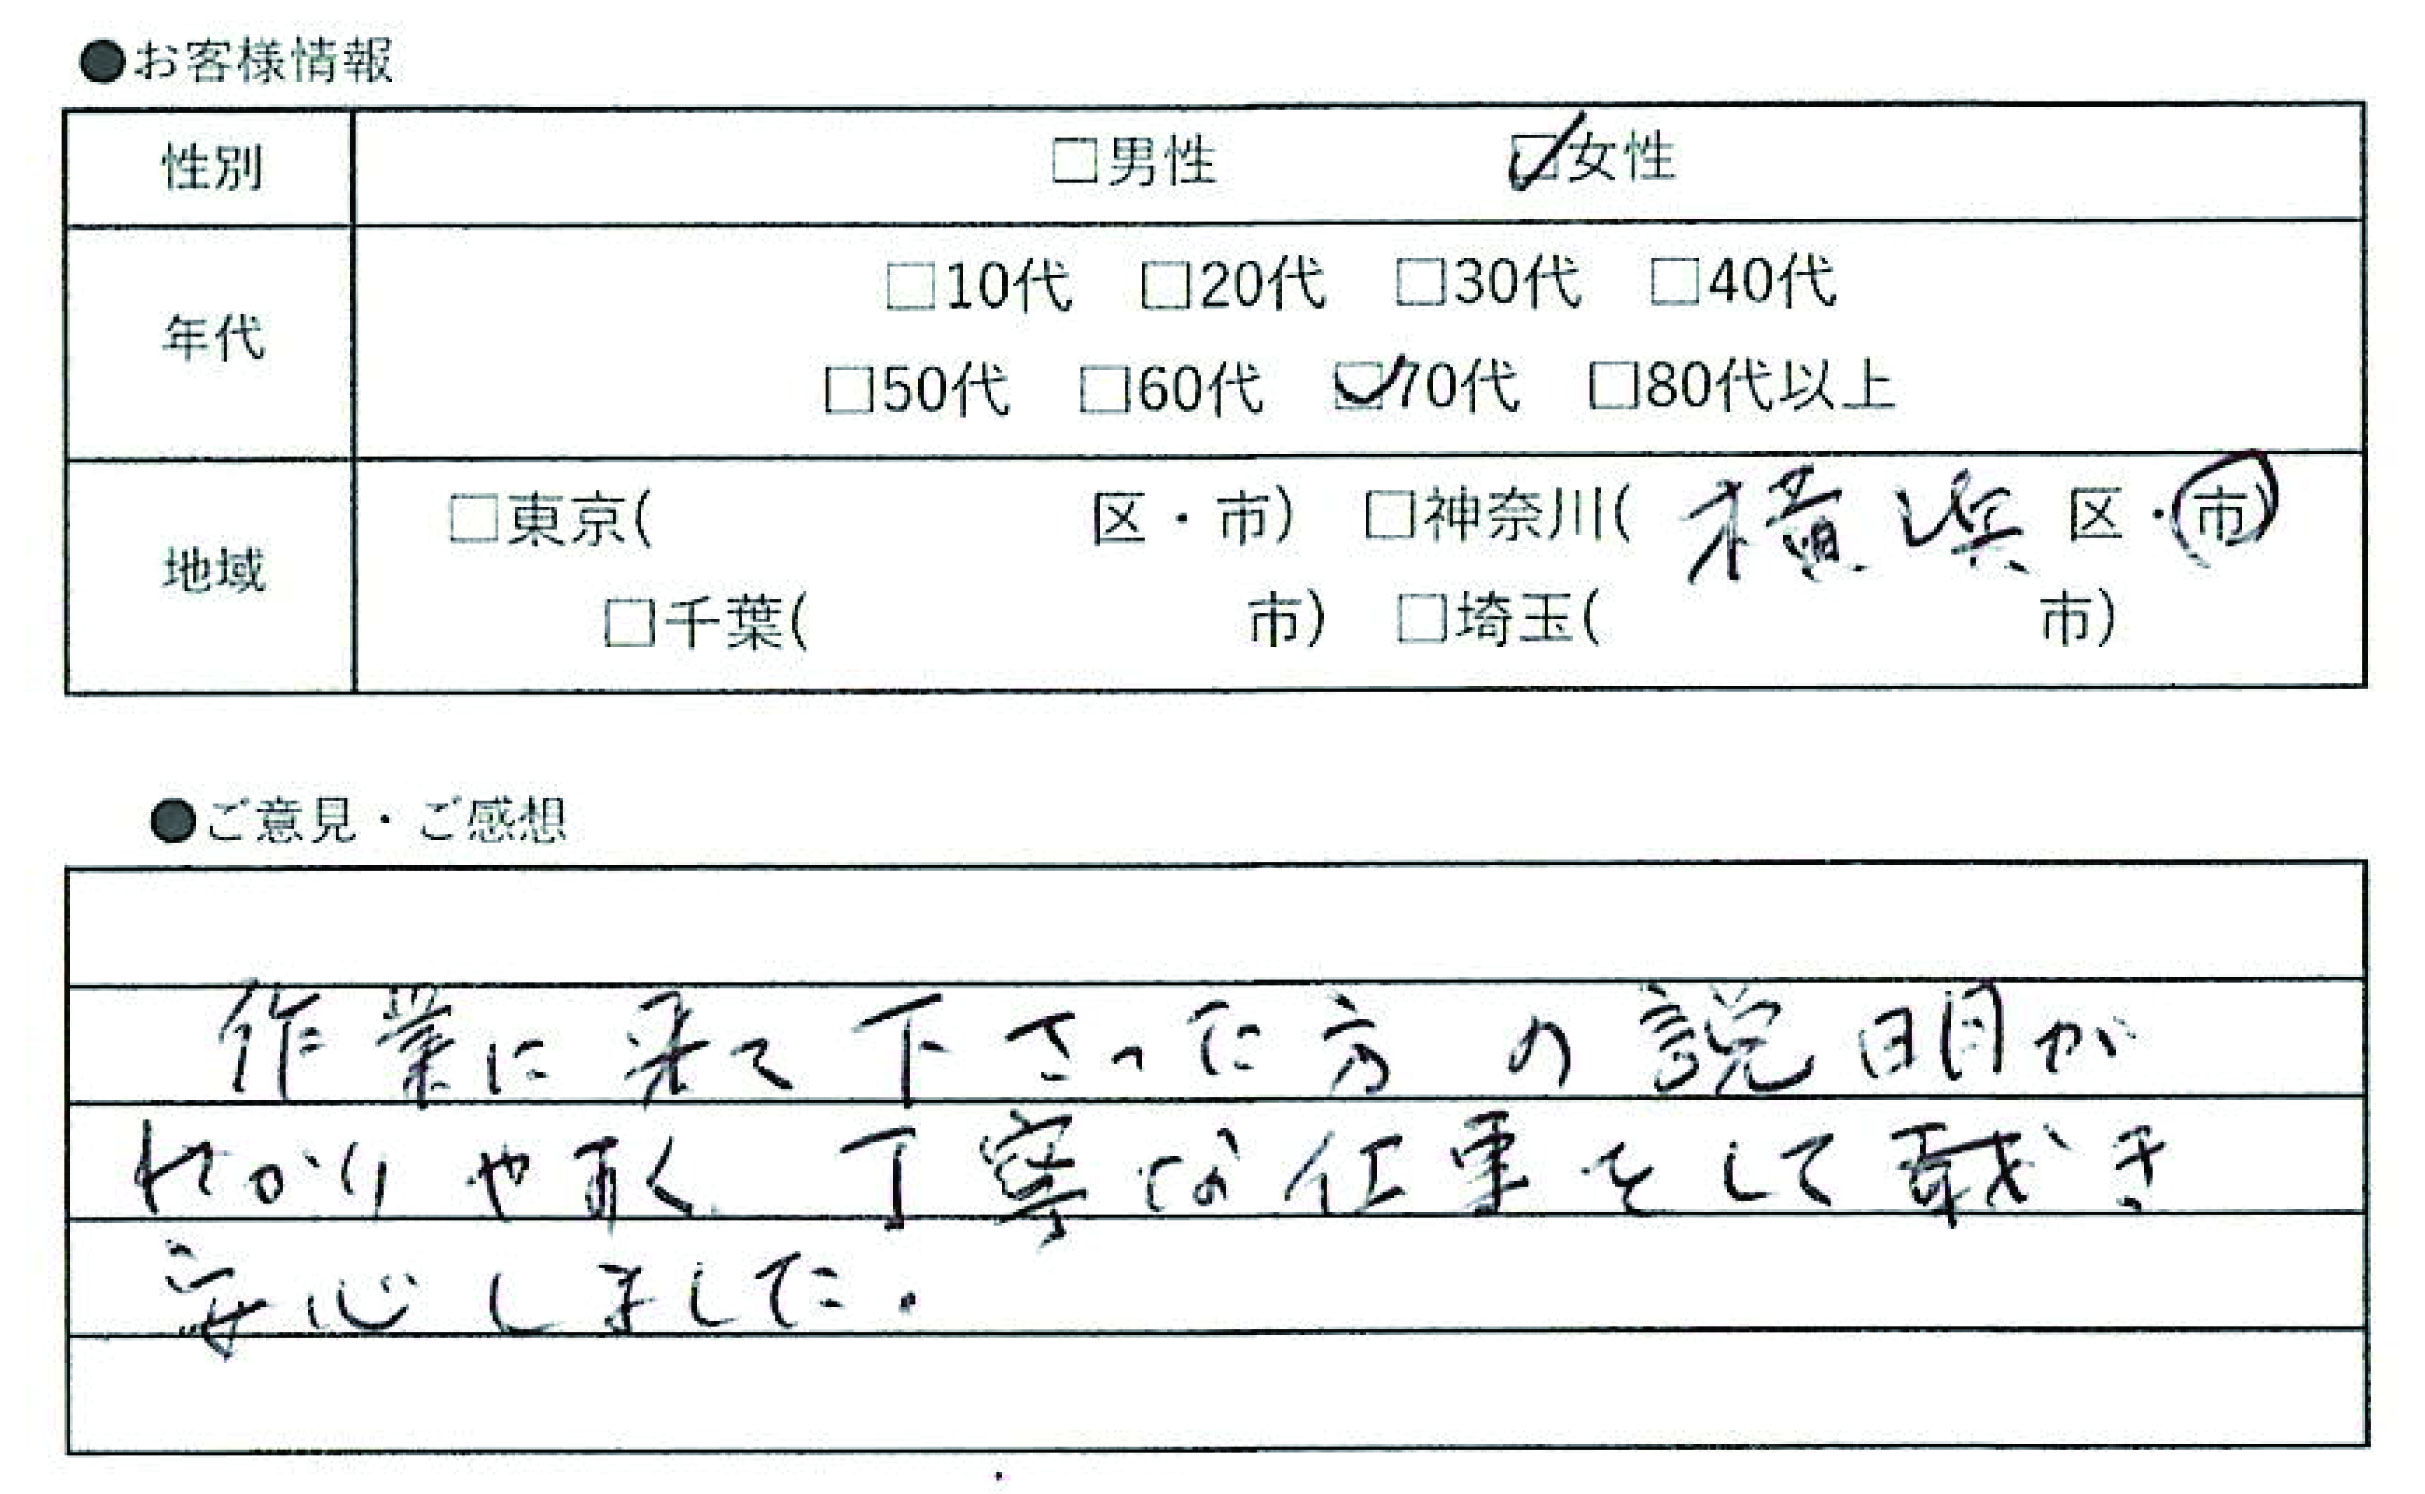 ●お客様情報
性別 □男性 ☑女性
年代
□10代 □20代 □30代 □40代
□50代 □60代 ☑70代 □80代以上
地域
□東京( 区・市) □神奈川( 横浜 区・市)
□千葉( 市) □埼玉( 市)
●ご意見・ご感想
作業に来て下さった方の説明が
わかりやすく丁寧な仕事をして戴き
安心しました.